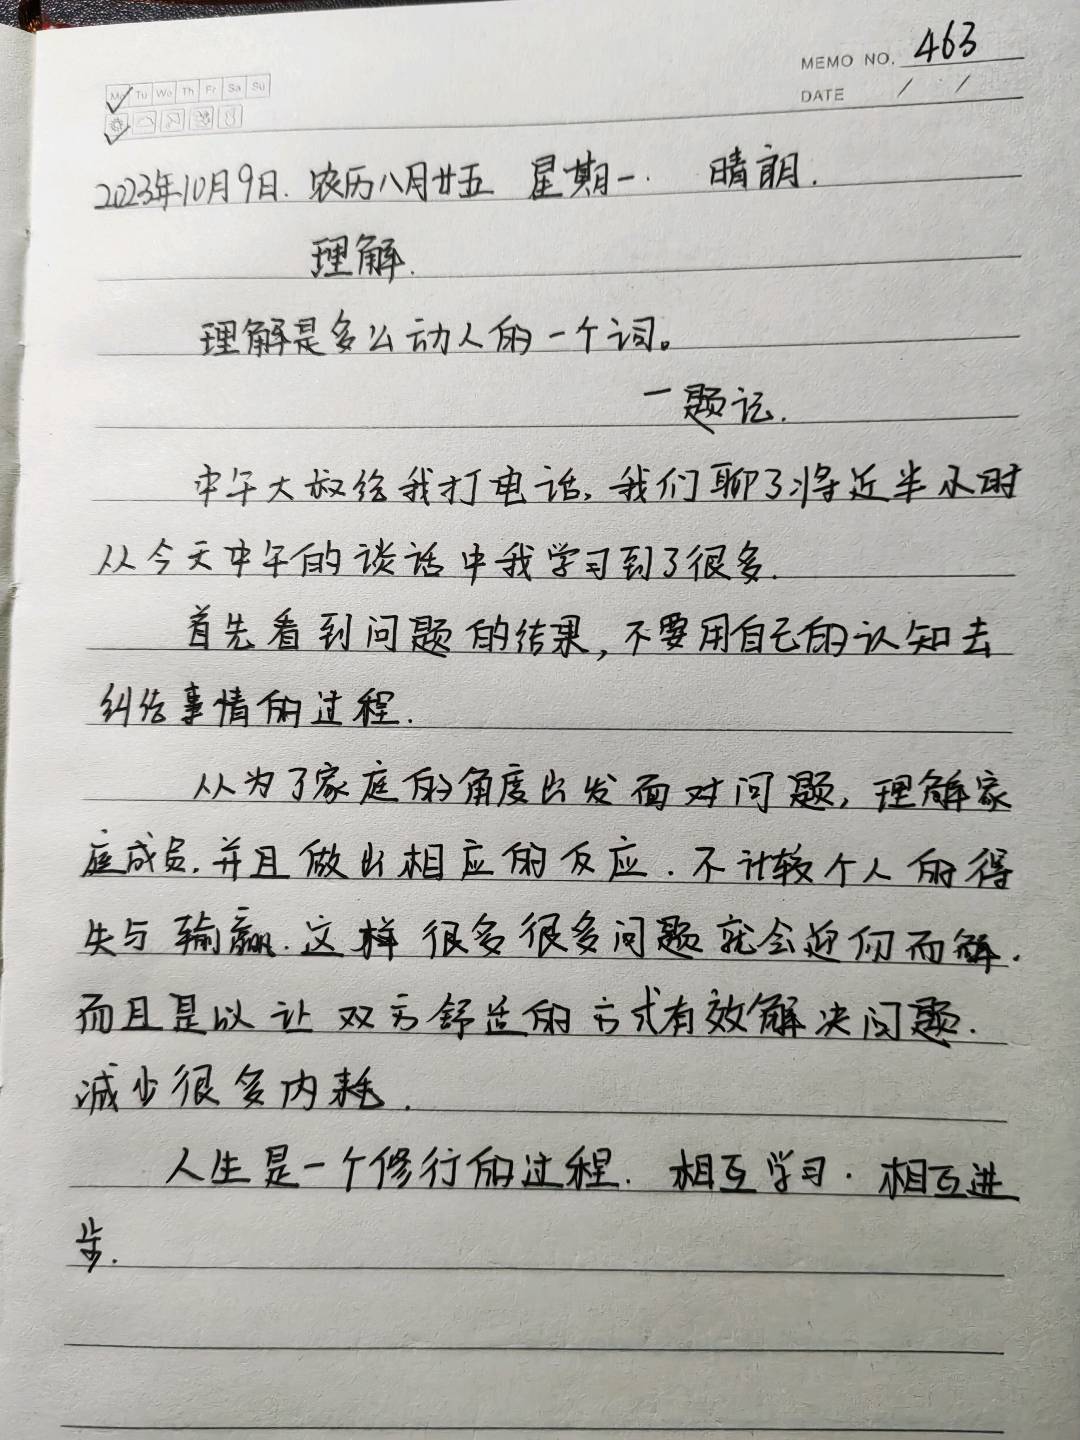 MEMO NO. 463
Mo Tu We Th Fr Sa Su
DATE / /
2023年10月9日. 农历八月廿五 星期一. 晴朗.
理解.
理解是多么动人的一个词。
一题记.
中午大叔给我打电话,我们聊了将近半小时
从今天中午的谈话中我学习到了很多.
首先看到问题的结果,不要用自己的认知去
纠结事情的过程.
从为了家庭的角度出发面对问题,理解家
庭成员.并且做出相应的反应.不计较个人的得
失与输赢.这样很多很多问题就会迎仞而解.
而且是以让双方舒适的方式有效解决问题.
减少很多内耗.
人生是一个修行的过程. 相互学习.相互进
步.